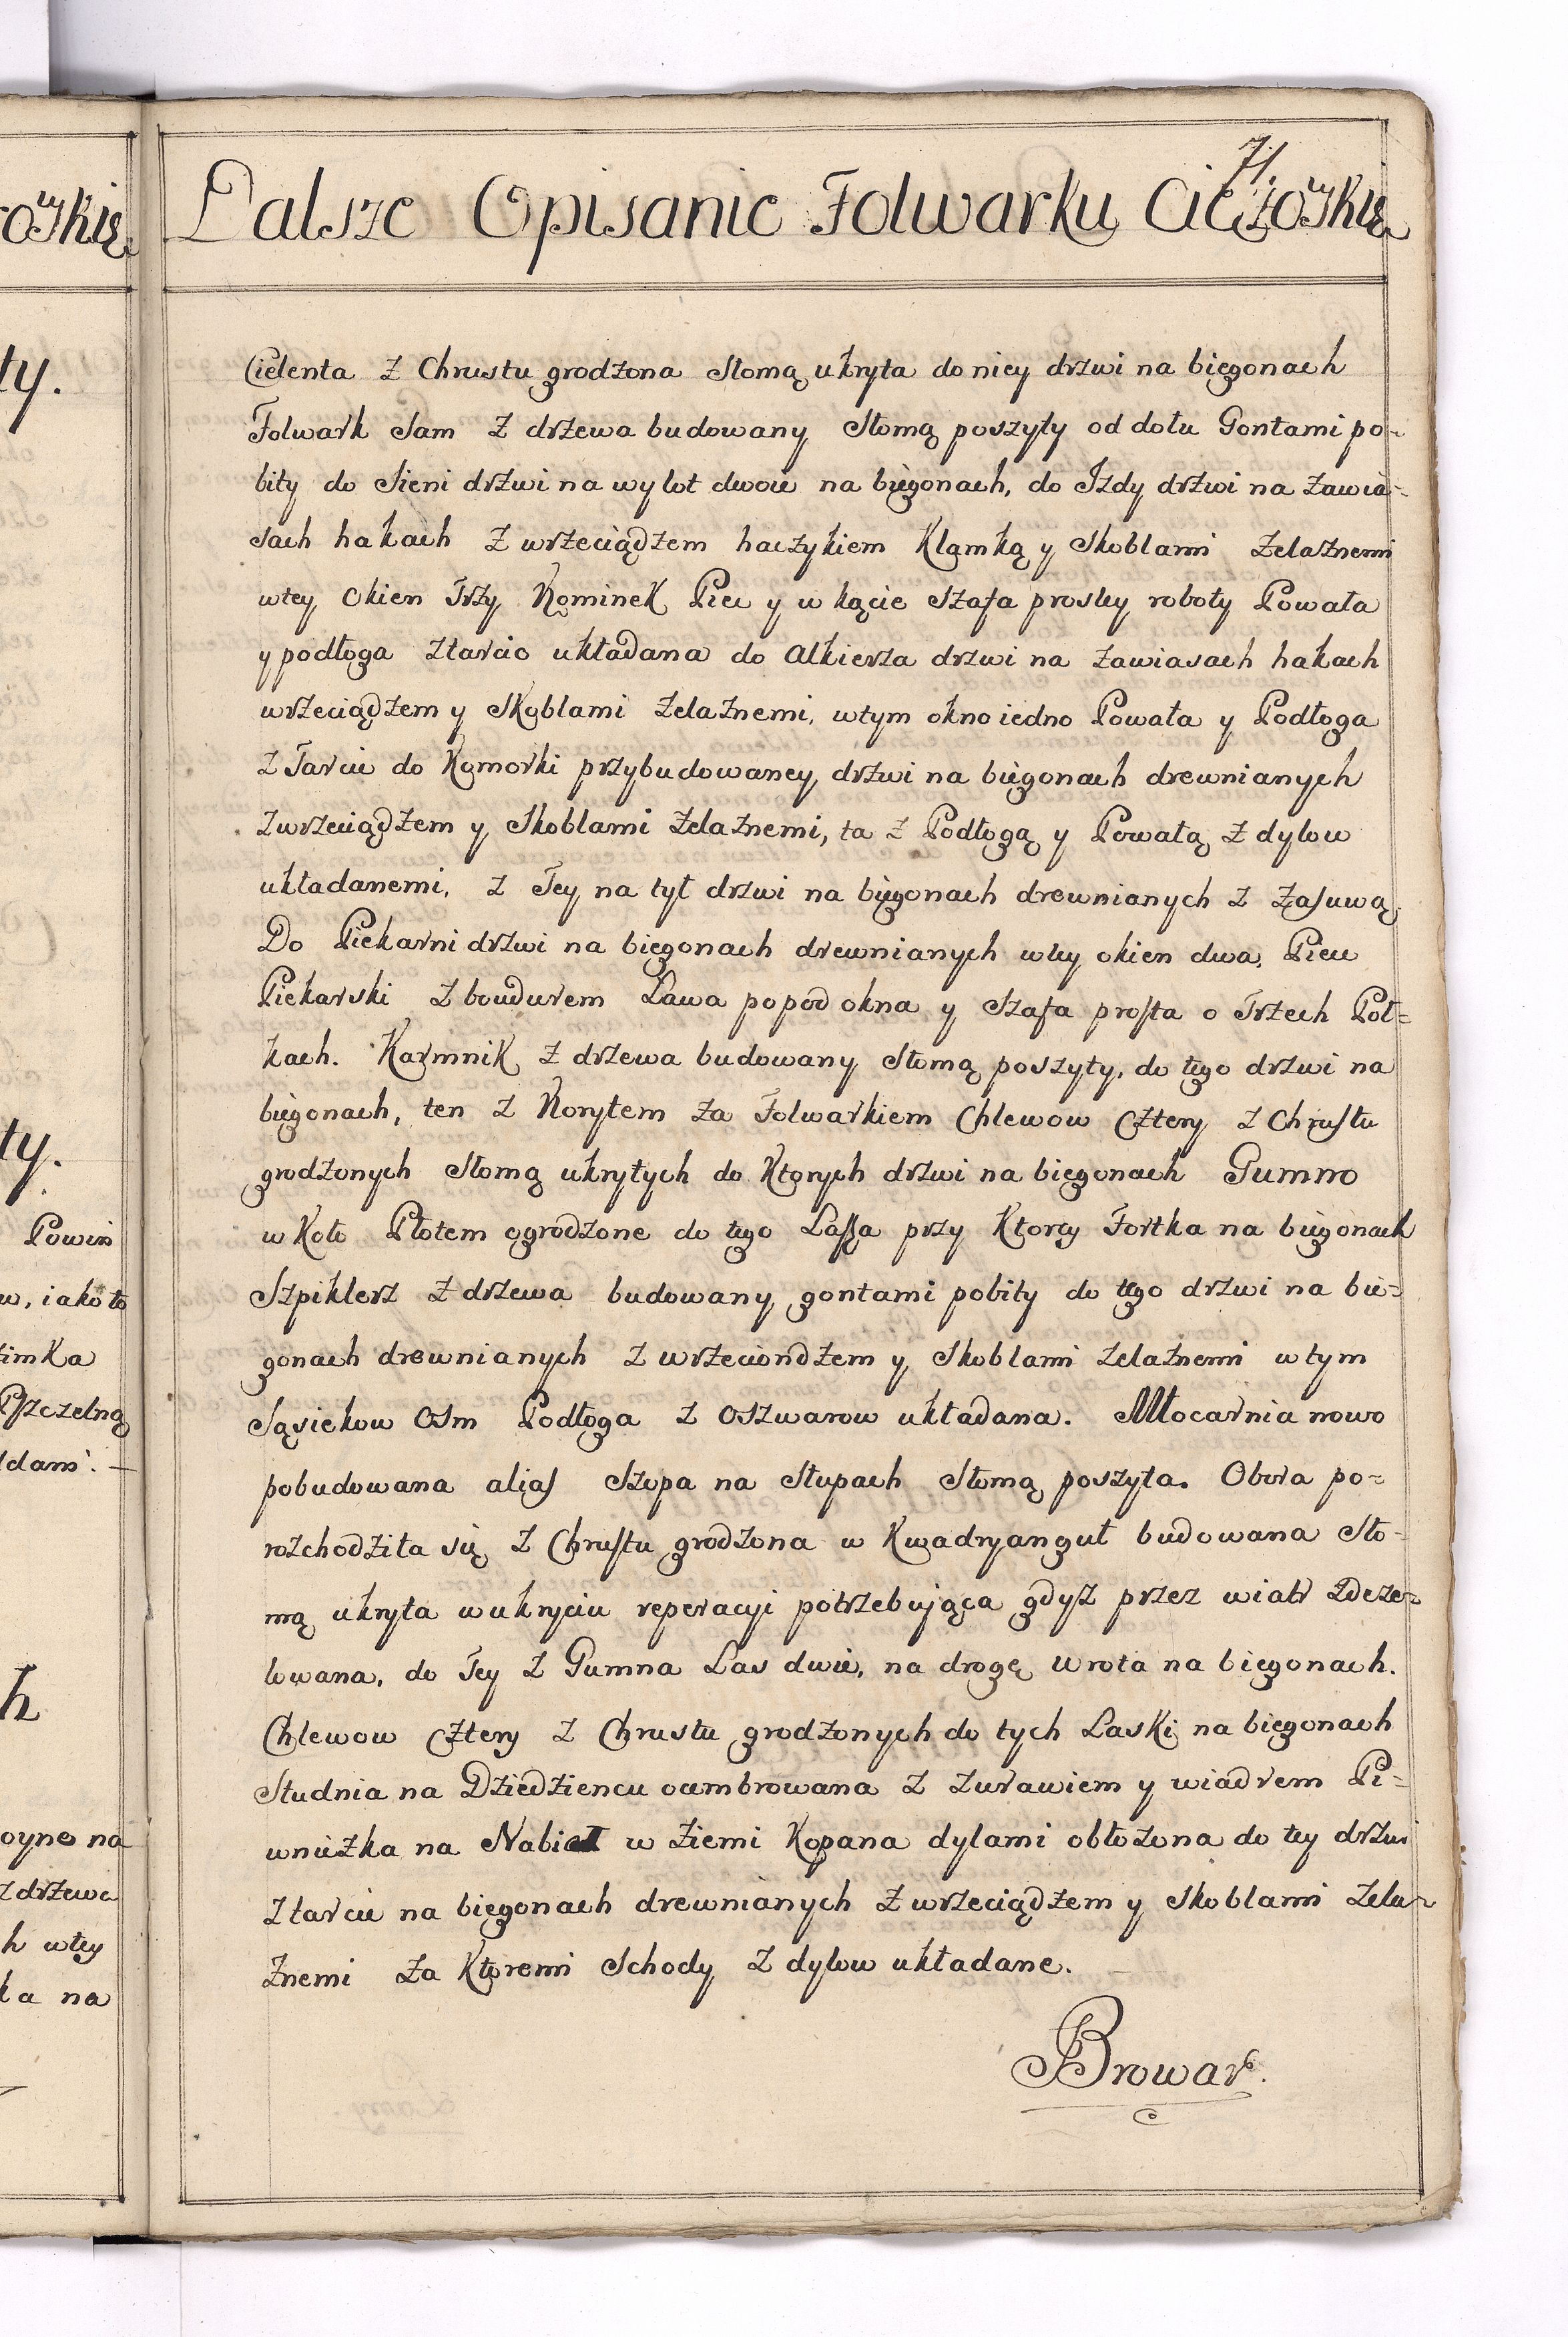 71.
Dalsze Opisanie Folwarku Cieżowskie
Cielenta z Chrustu grodzona Słomą ukryta do niey drzwi na biegonach
Folwark Sam z drzewa budowany Słomą poszyty od dołu Gontami po-
bity do Sieni drzwi na wylot dwoie na biegonach, do Izdy drzwi na zawia-
sach hakach z wrzeciądzem haczykiem Klamką y Skoblami żelaznemi
wtey Okien Trzy Kominek Piec y w kącie Szafa prostey roboty Powała
y podłoga ztarcic układana do Alkierza drzwi na zawiasach hakach
wrzeciądzem y Skoblami żelaznemi, wtym okno iedno Powała y Podłoga
z Tarcic do Komorki przybudowaney drzwi na biegonach drewnianych
zwrzeciądzem y Skoblami żelaznemi, ta z Podłogą y Powałą z dylow
układanemi, z Tey na tył drzwi na biegonach drewnianych z zasuwą.
Do Piekarni drzwi na biegonach drewnianych wtey okien dwa, Piec
Piekarski z boudurem Ława popod okna y Szafa prosta o Trzech Poł-
kach. Karmnik z drzewa budowany Słomą poszyty, do tego drzwi na
biegonach, ten z Korytem za Folwarkiem Chlewow Cztery z Chrustu
grodzonych Słomą ukrytych do Ktorych drzwi na biegonach Gumno
w Koło Płotem ogrodzone do tego Lassa przy Ktorey Fortka na biegonach
Szpiklerz z drzewa budowany gontami pobity do tego drzwi na bie-
gonach drewnianych z wrzeciondzem y Skoblami żelaznemi wtym
Sąsiekow Osm Podłoga z Oszwarow układana. Młocarnia nowo
pobudowana alias Szopa na Słupach Słomą poszyta. Obora po-
rozchodziła się z Chrustu grodzona w Kwadryanguł budowana Sło-
mą ukryta wukryciu reperacyi potrzebująca gdyż przez wiatr Zdeze-
lowana, do Tey z Gumna Las dwie, na drogę wrota na biegonach.
Chlewow Cztery z Chrustu grodzonych do tych Laski na biegonach
Studnia na Dziedziencu ocembrowana z Zurawiem y wiadrem Pi-
wniczka na Nabiał w Ziemi Kopana dylami obłozona do tey drzwi
ztarcic na biegonach drewnianych z wrzeciądzem y Skoblami żela-
znemi za Ktoremi Schody z dylow układane.
Browar.
ty.
ty.
Powin
w, iako to
Pszczelną
h
na
zdrzewa
h wtey
ka na